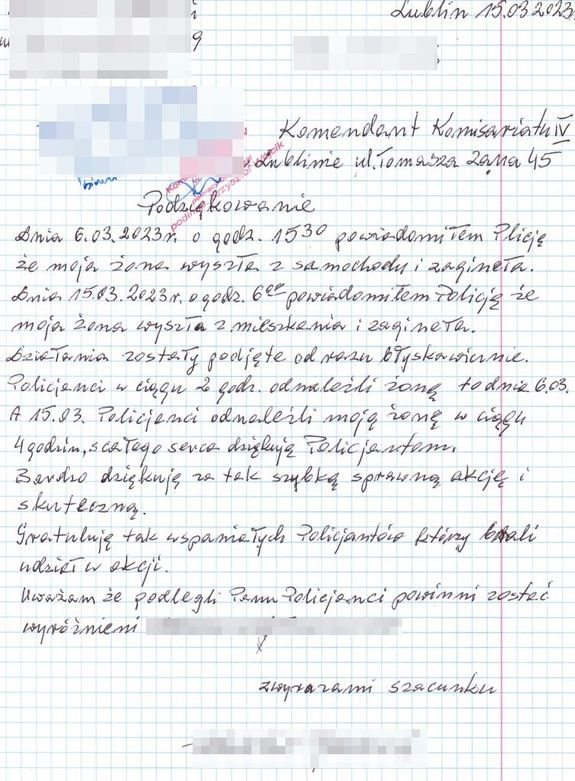 Lublin 15.03.2023
9
Komendant Komisariatu IV
Lublinie ul. Tomasza Zana 45
Podziękowanie
Dnia 6.03.2023r. o godz. 15³⁰ powiadomiłem Plicję
że moja żona wyszła z samochodu i zagineła.
Dnia 15.03.2023r. o godz. 6⁰⁰ powiadomiłem Policję że
moja żona wyszła z mieszkania i zagineła.
Działania zostały podjęte od razu błyskawicznie.
Policjanci w ciągu 2 godz. odnaleźli żonę to dnia 6.03.
A 15.03. Policjanci odnaleźli moją żonę w ciągu
4 godzin, z całego serca dziękuję Policjantom.
Bardzo dziękuję za tak szybką sprawną akcję i
skuteczną.
Gratuluję tak wspaniałych Policjantów którzy brali
udział w akcji.
Uważam że podlegli Panu Policjanci powinni zostać
wyróżnieni
z wyrazami szacunku